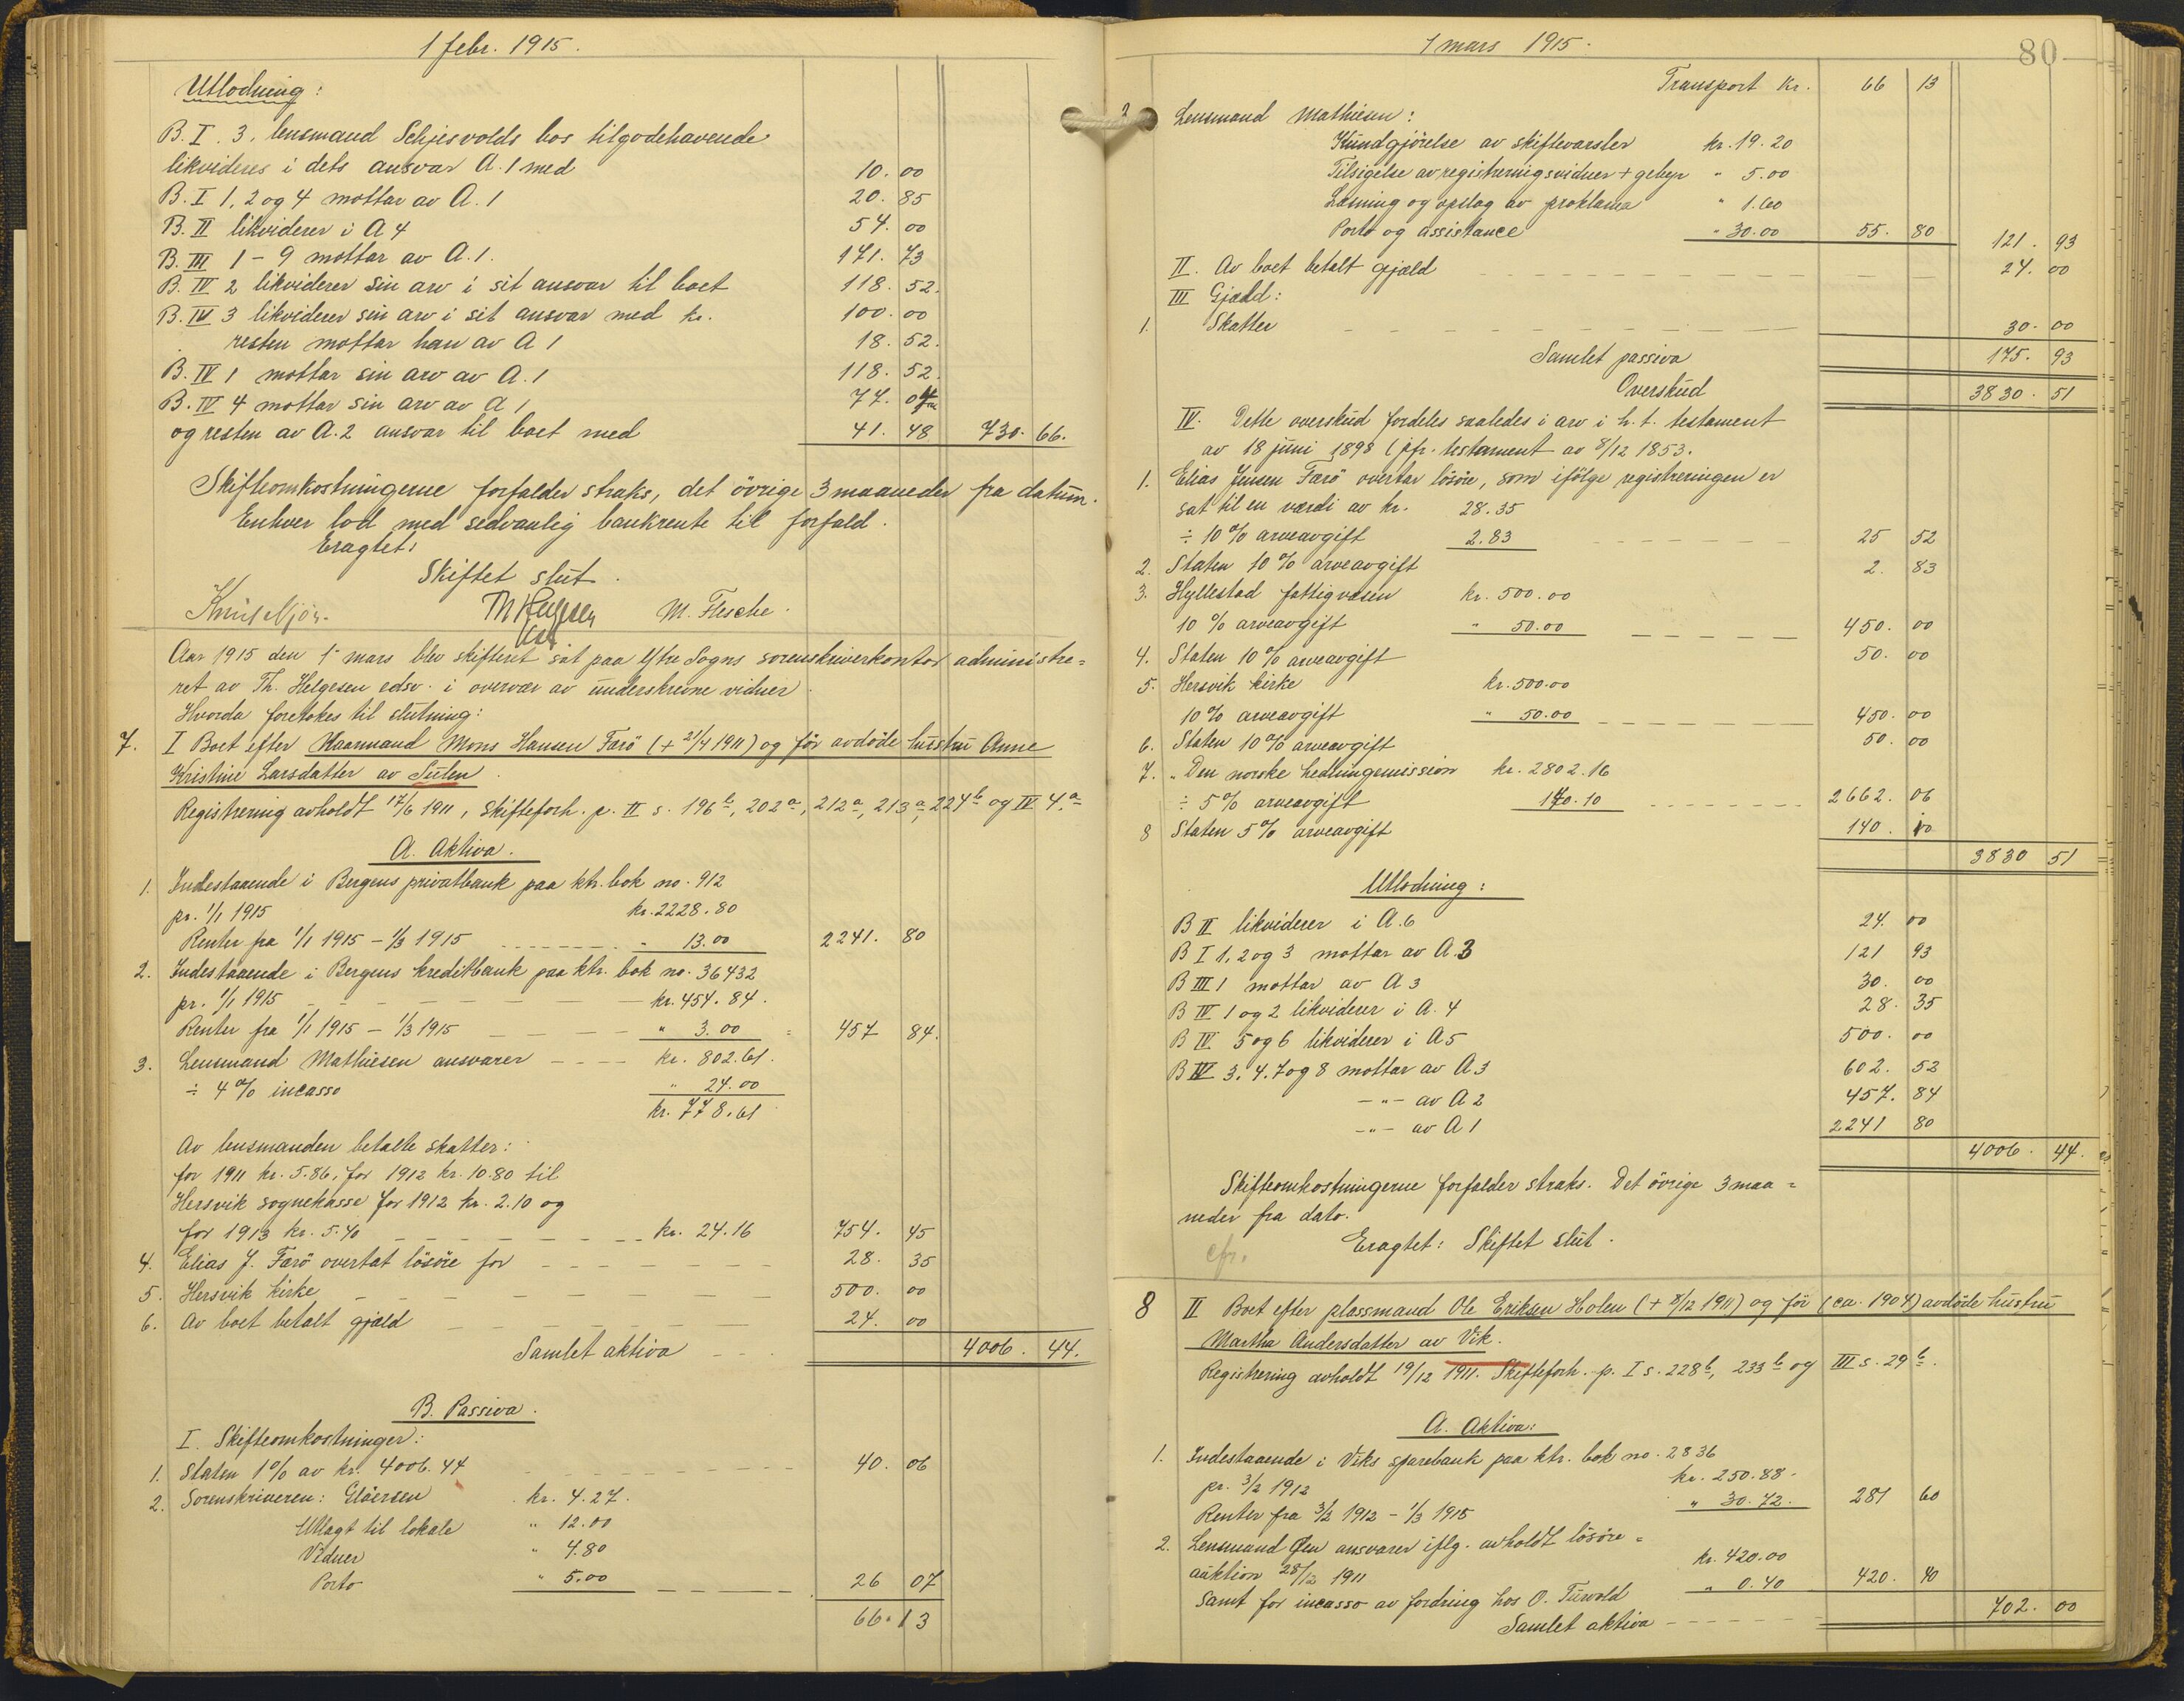 1 febr. 1915.
Utlodning:
B. I. 3. lensmand Schjesvolds bos tilgodehavende
likvideres i dets ansvar A. 1 med 10. 00
B. I 1, 2 og 4 mottar av A. 1 20. 85
B. II likviderer i A 4 54. 00
B. III 1 - 9 mottar av A. 1. 171. 73
B. IV 2 likviderer sin arv i sit ansvar til boet 118. 52.
B. IV 3 likviderer sin arv i sit ansvar med kr. 100. 00
resten mottar han av A 1 18. 52.
B. IV 1 mottar sin arv av A. 1 118. 52.
B. IV 4 mottar sin arv av A 1 77. 04
og resten av A. 2 ansvar til boet med 41. 48 730. 66.
Skifteomkostningerne forfalder straks, det övrige 3 maaneder fra datum.
Enhver lod med sedvanlig bankrente til forfald.
Eragtet:
Skiftet slut.
Th Helgesen M. Flesche.
Aar 1915 den 1 mars blev skifteret sat paa Ytre Sogns sorenskriverkontor administre=
ret av Th. Helgesen edsv. i overvær av underskrevne vidner.
Hvorda foretokes til slutning:
7. I Boet efter Kaarmand Mons Hansen Farö (+ 21/4 1911) og för avdöde hustru Anne
Kristine Larsdatter av Sulen.
Registrering avholdt 17/6 1911, Skifteforh. p. II s. 196 b, 202 a, 212 a, 213 a, 224 b og IV 4. a
A. Aktiva.
1. Indestaaende i Bergens privatbank paa ktr. bok no. 912
pr. 1/1 1915 kr. 2228. 80
Renter fra 1/1 1915 - 1/3 1915 " 13. 00 2241. 80
2. Indestaaende i Bergens kreditbank paa ktr. bok no. 36432
pr. 1/1 1915 kr. 454. 84.
Renter fra 1/1 1915 - 1/3 1915 " 3. 00 = 457 84.
3. Lensmand Mathiesen ansvarer kr. 802. 61.
÷ 4 % incasso " 24. 00
kr. 778. 61
Av lensmanden betalte skatter:
for 1911 kr. 5. 86, for 1912 kr. 10. 80 til
Hersvik sognekasse for 1912 kr. 2. 10 og
for 1913 kr. 5. 40 kr. 24. 16 754. 45
4. Elias J. Farö overtat lösöre for 28. 35
5. Hersvik kirke 500. 00
6. Av boet betalt gjæld 24. 00
Samlet aktiva 4006. 44.
B. Passiva.
I. Skifteomkostninger:
1. Staten 1 % av kr. 4006. 44 40. 06
2. Sorenskriveren: Gløersen kr. 4. 27.
Utlagt til lokale " 12. 00
Vidner " 4. 80
Porto " 5. 00 26 07
66. 13
1 mars 1915. 80
Transport kr. 66 13
3 Lensmand Mathiesen:
Kundgjörelse av skiftevarsler kr. 19. 20
Tilsigelse av registreringsvidner + gebyr " 5. 00
Læsning og opslag av proklama " 1. 60
Porto og assistance " 30. 00 55. 80 121. 93
II. Av boet betalt gjæld 24. 00
III Gjæld:
1. Skatter 30. 00
Samlet passiva 175. 93
Overskud 3830. 51
IV. Dette overskud fordeles saaledes i arv i h. t. testament
av 18 juni 1898 (jfr. testament av 8/12 1853.
1. Elias Jensen Farö overtar lösöre, som ifölge registreringen er
sat til en værdi av kr. 28. 35
÷ 10 % arveavgift 2. 83 25 52
2. Staten 10 % arveavgift 2. 83
3. Hyllestad fattigvæsen kr. 500. 00
10 % arveavgift " 50. 00 450. 00
4. Staten 10 % arveavgift 50. 00
5. Hersvik kirke kr. 500. 00
10 % arveavgift " 50. 00 450. 00
6. Staten 10 % arveavgift 50. 00
7. " Den norske hedningemission kr. 2802. 16
÷ 5 % arveavgift 140. 10 2662. 06
8 Staten 5 % arveavgift 140. 10
3830 51
Utlodning:
B II likviderer i A. 6 24. 00
B I 1, 2 og 3 mottar av A. 3 121 93
B III 1 mottar av A 3 30. 00
B IV 1 og 2 likviderer i A. 4 28. 35
B IV 5 og 6 likviderer i A 5 500. 00
B IV 3. 4. 7 og 8 mottar av A 3 602. 52
-"- av A 2 457. 84
-"- av A 1 2241 80
4006. 44.
Skifteomkostningerne forfalder straks. Det övrige 3 maa=
neder fra dato.
Eragtet: Skiftet slut.
cfr.
8 II Boet efter plassmand Ole Eriksen Holen (+ 8/12 1911) og för (ca. 1904) avdöde hustru
Martha Andersdatter av Vik.
Registrering avholdt 19/12 1911. Skifteforh. p. I s. 228 b, 233 b og III s. 29 b.
A. Aktiva:
1. Indestaaende i Viks sparebank paa ktr. bok no. 2836
pr. 3/2 1912 kr. 250. 88.
Renter fra 3/2 1912 - 1/3 1915 " 30. 72. 281 60
2. Lensmand Øen ansvarer iflg. avholdt lösöre=
auktion 28/12 1911 kr. 420. 00
samt for incasso av fordring hos O. Turvold " 0. 40 420. 40
Samlet aktiva 702. 00